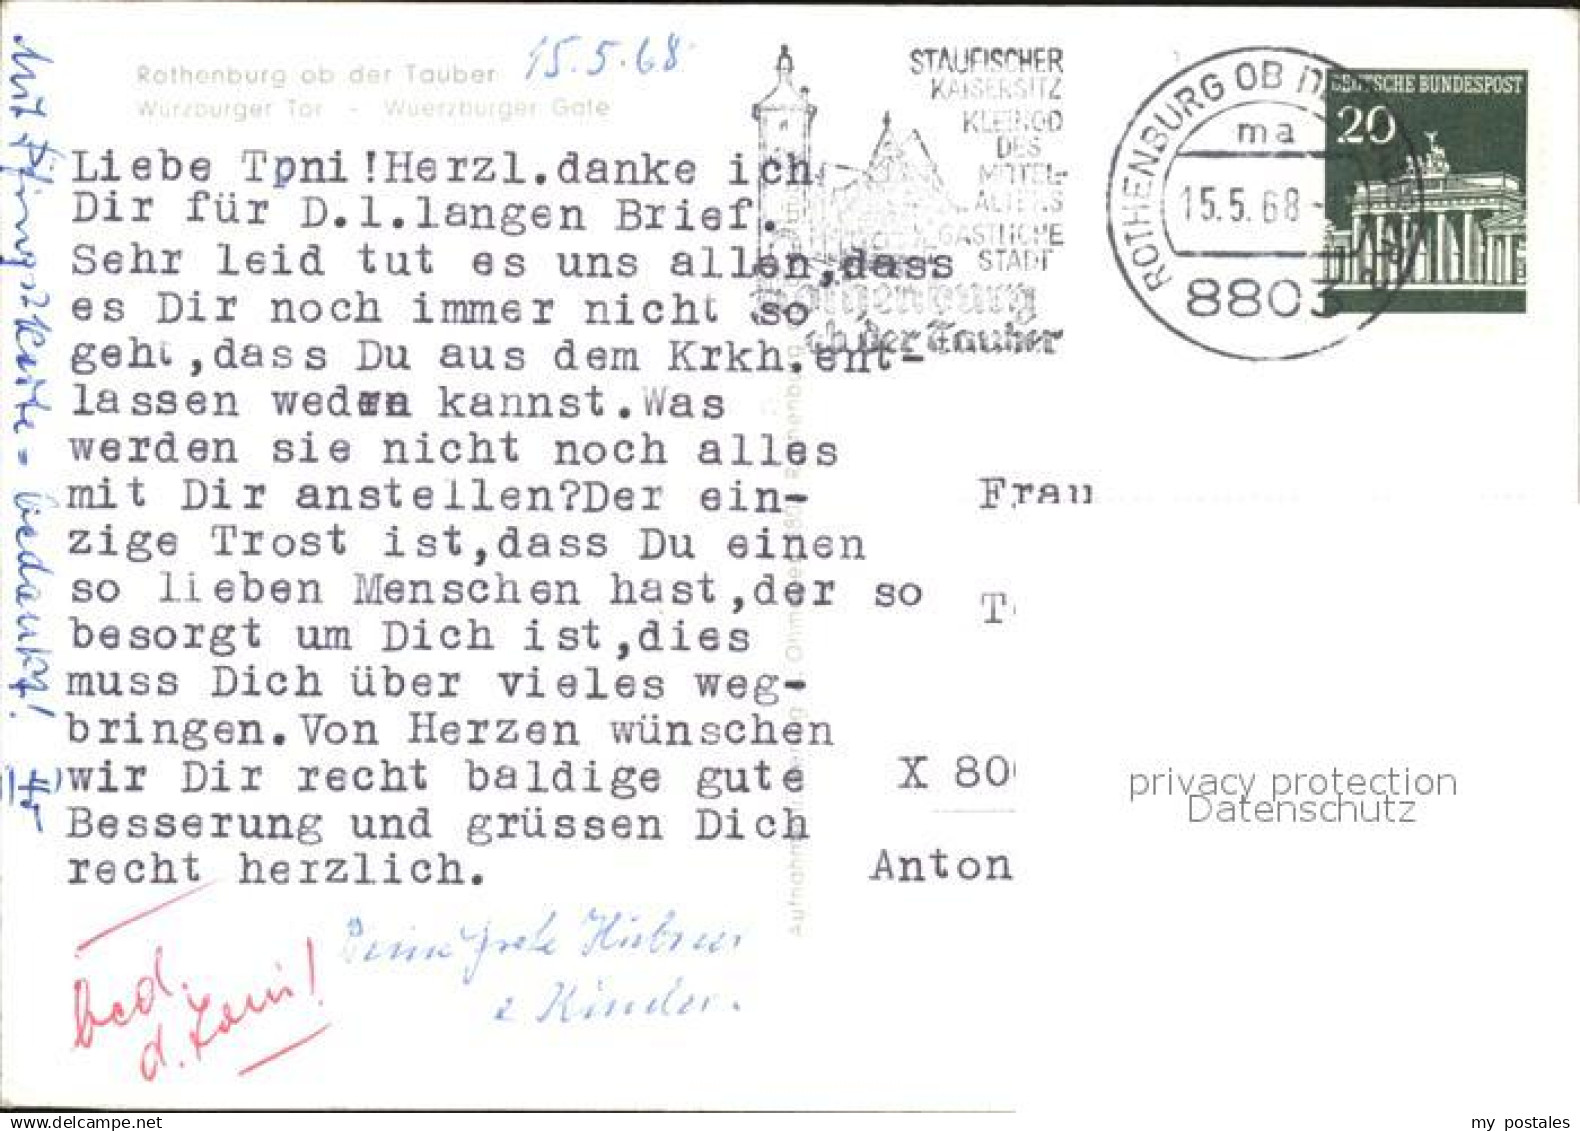 15.5.68
Rothenburg ob der Tauber
Würzburger Tor - Wuerzburger Gate
STAUFISCHER
KAISERSITZ
KLEINOD
DES
MITTEL-
ALTERS
GASTLICHE
STADT
Rothenburg
ob der Tauber
ROTHENBURG OB DER TAUBER
ma
15.5.68
8803
DEUTSCHE BUNDESPOST
20
Liebe Tpni!Herzl.danke ich
Dir für D.l.langen Brief.
Sehr leid tut es uns allen,dass
es Dir noch immer nicht so
geht,dass Du aus dem Krkh.ent-
lassen weden kannst.Was
werden sie nicht noch alles
mit Dir anstellen?Der ein-
zige Trost ist,dass Du einen
so lieben Menschen hast,der so
besorgt um Dich ist,dies
muss Dich über vieles weg-
bringen.Von Herzen wünschen
wir Dir recht baldige gute
Besserung und grüssen Dich
recht herzlich.
Deine Grete Hübner
u Kinder.
bed.
d. Toni!
Mit Pfingstkarte = bedankt!
Frau
T
X 80
Anton
privacy protection
Datenschutz
my postales